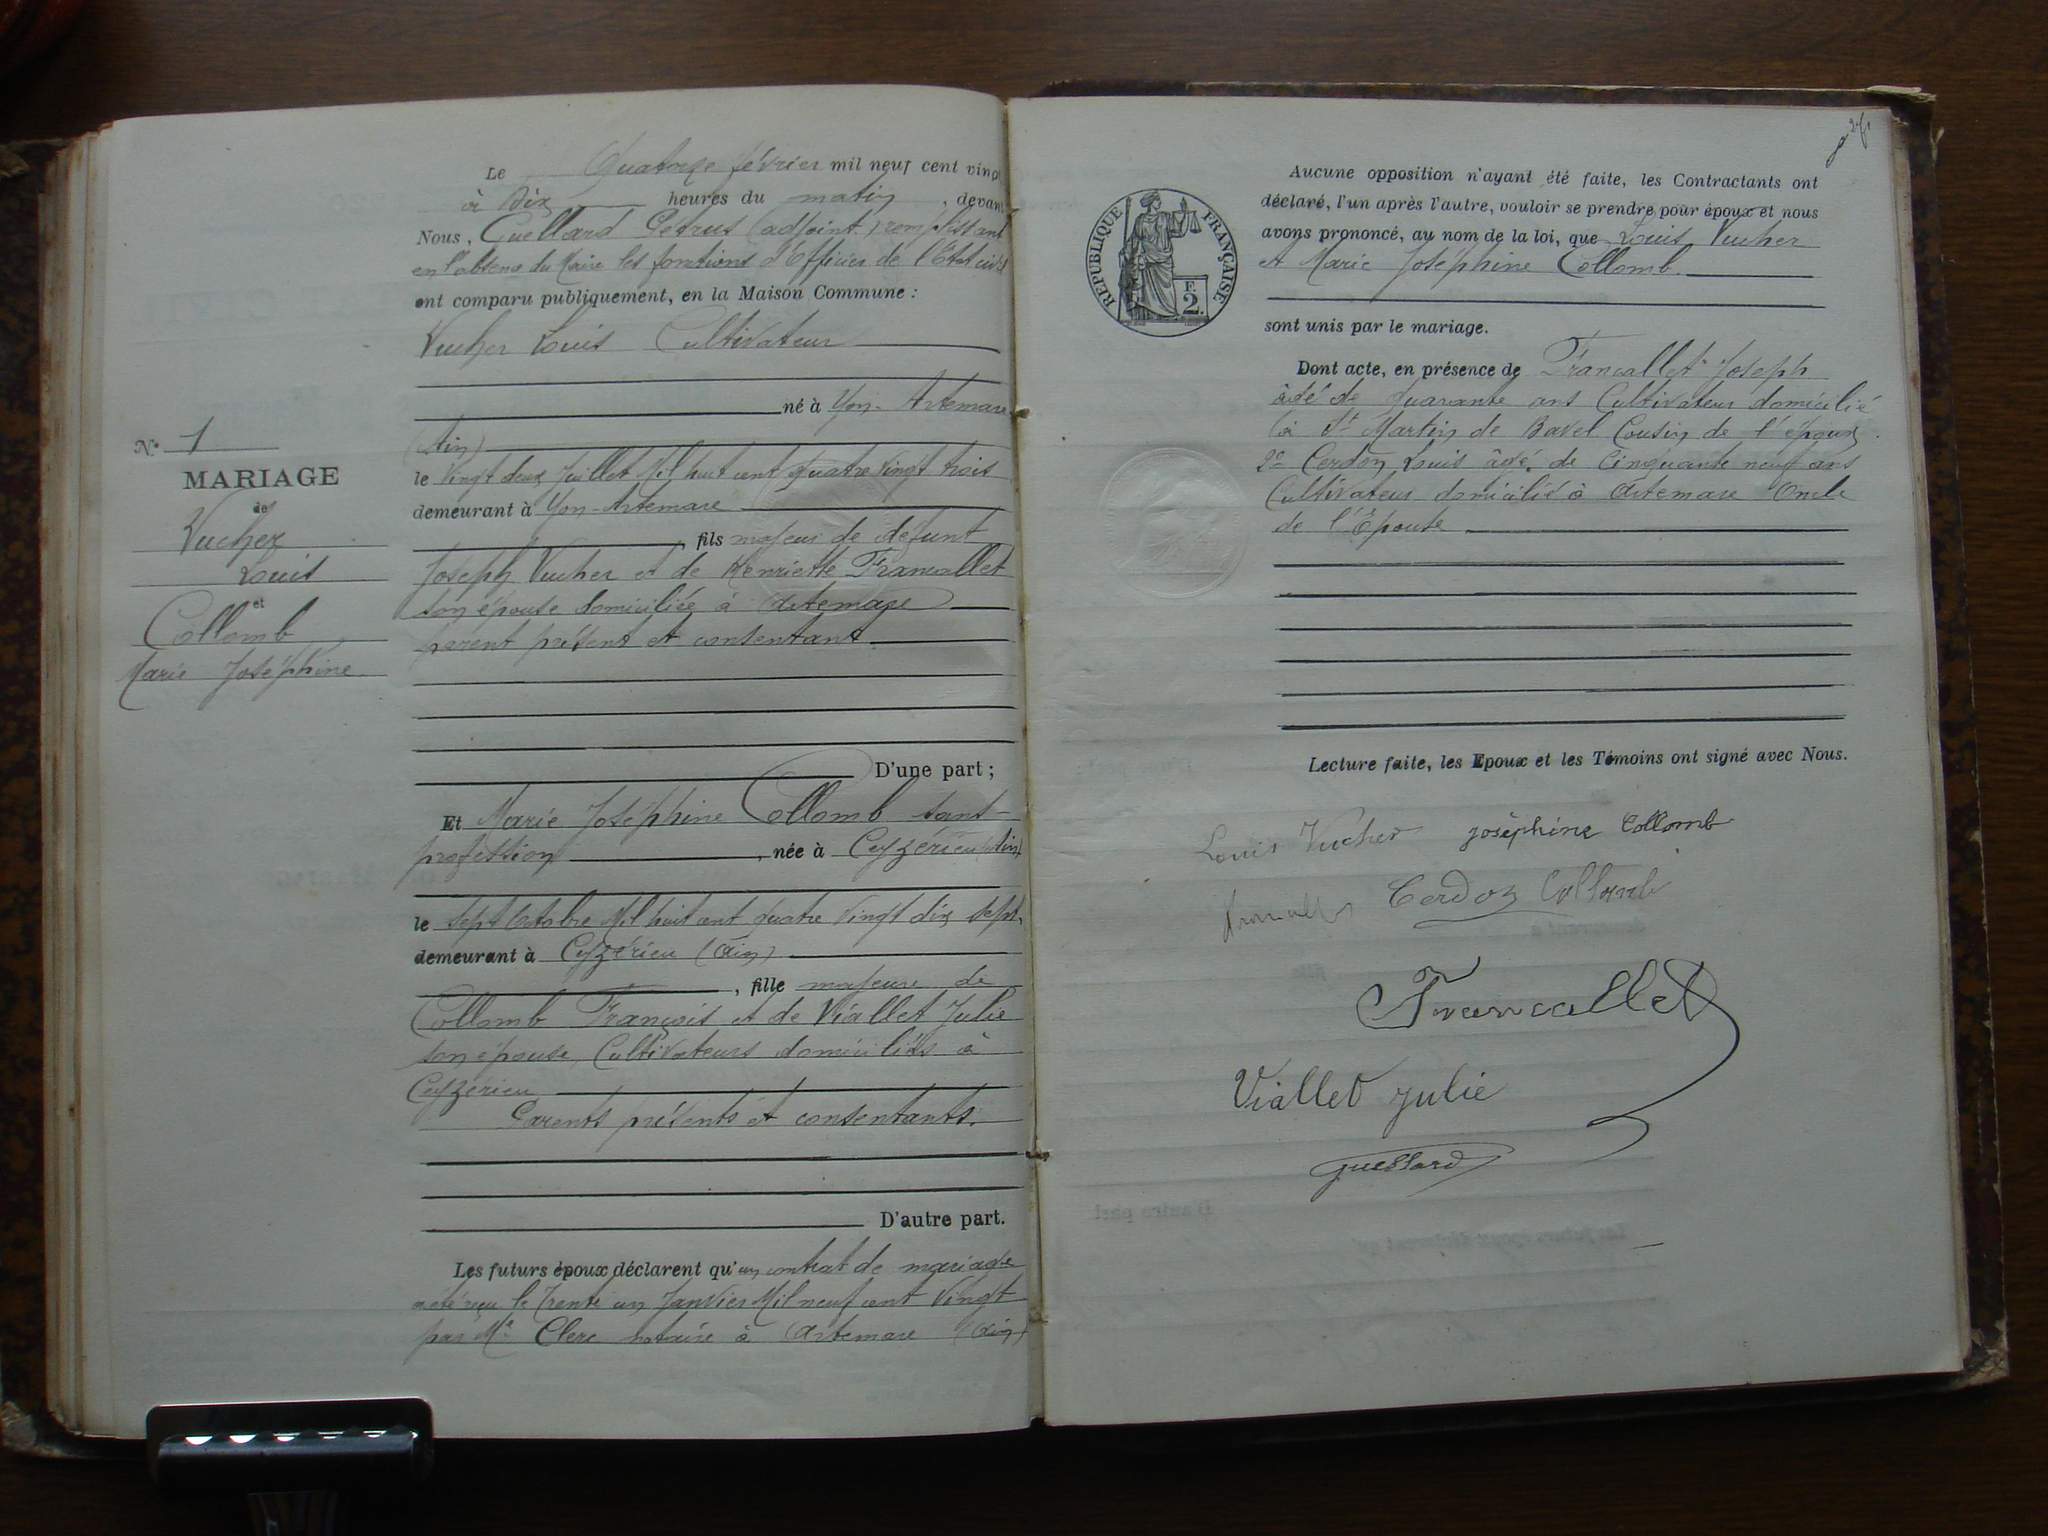 Le Quatorze février mil neuf cent vingt
à Dix heures du matin, devant
Nous, Guellard Petrus (adjoint) remplissant
en l'absence du Maire les fonctions d'Officier de l'Etat civil
ont comparu publiquement, en la Maison Commune :
Vucher Louis Cultivateur
né à Yon-Artemare
(Ain)
le Vingt deux Juillet Mil huit cent quatre vingt trois
demeurant à Yon-Artemare
, fils majeur de défunt
Joseph Vucher et de Henriette Francallet
son épouse domiciliée à Artemare
parent présent et consentant
D'une part ;
N° 1
MARIAGE
de
Vucher
Louis
et
Collomb
Marie Joséphine
Et Marie Joséphine Collomb sans
profession , née à Ceyzérieu (Ain)
le sept Octobre Mil huit cent quatre vingt dix sept,
demeurant à Ceyzérieu (Ain)
, fille majeure de
Collomb François et de Viallet Julie
son épouse, Cultivateurs domiciliés à
Ceyzérieu
Parents présents et consentants.
D'autre part.
Les futurs époux déclarent qu'un contrat de mariage
a été reçu le Trente un Janvier Mil neuf cent Vingt
par Me Clerc notaire à Artemare (Ain)
REPUBLIQUE FRANÇAISE
F. 2.
Aucune opposition n'ayant été faite, les Contractants ont
déclaré, l'un après l'autre, vouloir se prendre pour époux et nous
avons prononcé, au nom de la loi, que Louis Vucher
et Marie Joséphine Collomb
sont unis par le mariage.
Dont acte, en présence de Francallet Joseph
âgé de quarante ans Cultivateur domicilié
à St Martin de Bavel Cousin de l'époux
2° Cerdon Louis âgé de Cinquante neuf ans
Cultivateur domicilié à Artemare Oncle
de l'Epouse
Lecture faite, les Epoux et les Témoins ont signé avec Nous.
Louis Vucher Joséphine Collomb
Cerdon Collomb
Francallet
Viallet Julie
Guellard